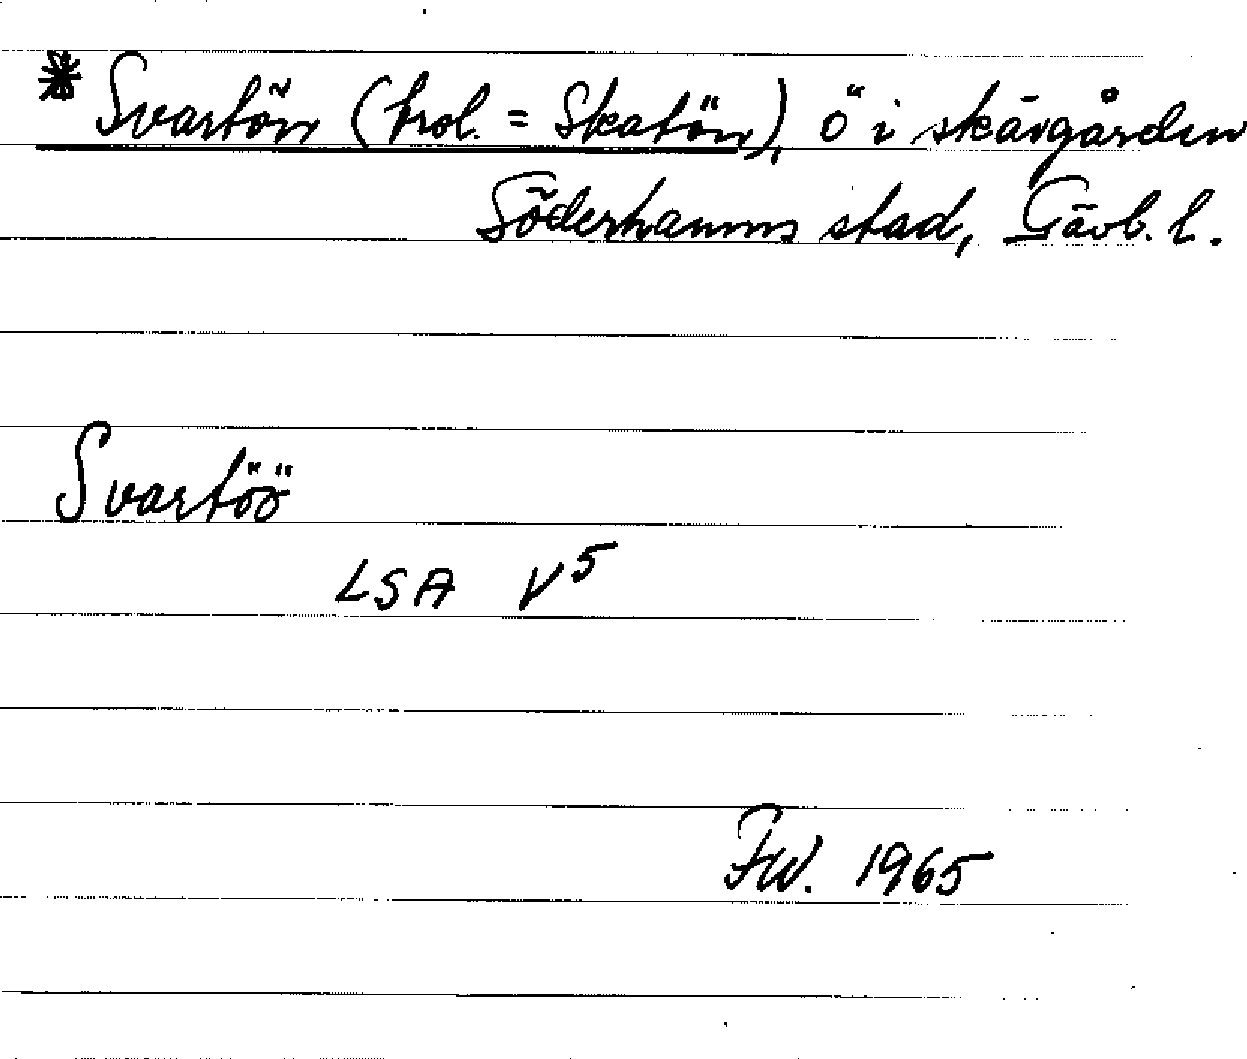 * Svartön (trol. = Skatön), ö i skärgården
Söderhamns stad, Gävb. l.
Svartöö
LSA V5
FW. 1965